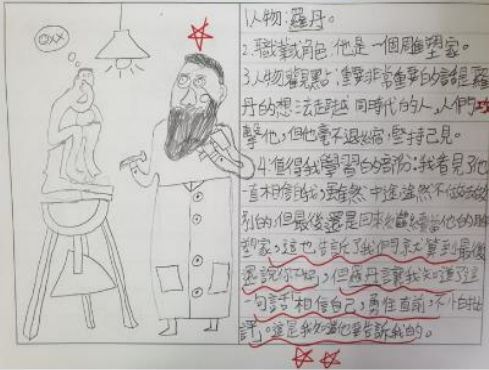 QXX
1.人物:羅丹。
2.職業角色:他是一個雕塑家。
3.人物觀點:重要非常重要的話是羅
丹的想法走超同時代的人,人們攻
擊他,但他毫不退縮,堅持己見。
4.值得我學習的部份:我看見了他
一直相信自我,雖然中途雖然不做
別的,但最後還是回來繼續當他的雕
塑家,這也告訴了我們就算到最後
還說你不好,但羅丹讓我知道了這
一句話「相信自己,勇往直前」,不怕批
評。這是我知道他要告訴我的。